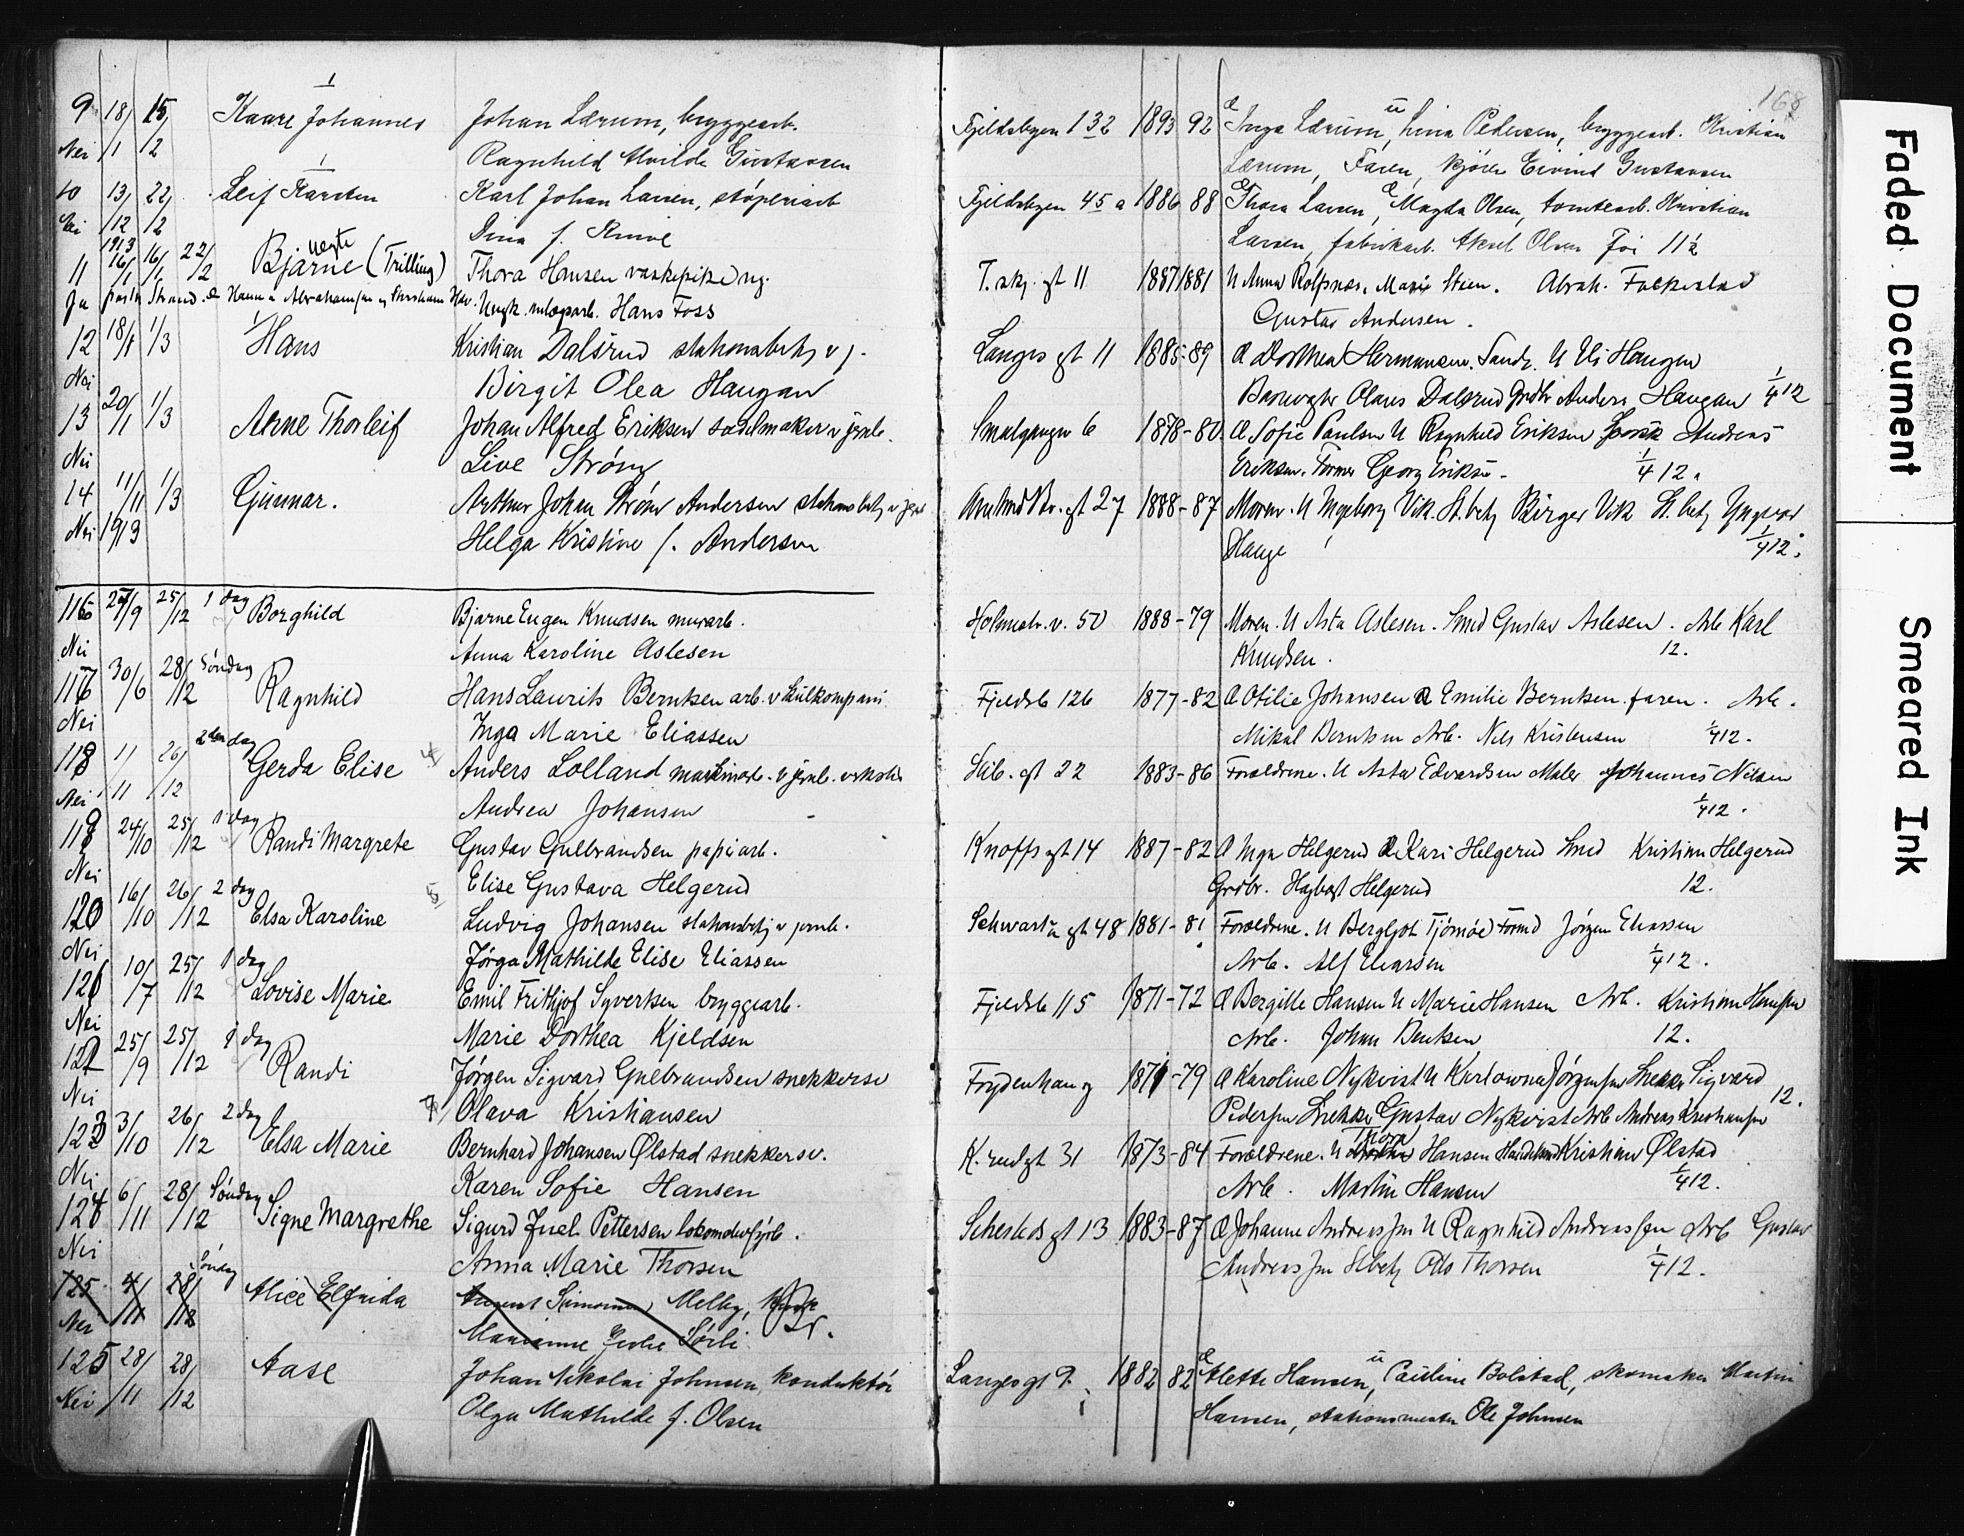 168
9 18/1 15/2 Kaare Johannes Johan Lærum, bryggearb. Fjeldbyen 132 1893 92 Inga Lærum, Lina Pedersen, bryggearb. Kristian
Nei Ragnhild Alvilde Gustavsen Lærum, Faren, kjører Eivind Gustavsen
10 13/12 22/2 Leif Karsten Karl Johan Larsen, støperiarb Fjeldbyen 45 a 1886 88 Thora Larsen, Magda Olsen, tomtearb. Kristian
Nei Dina f. Larsen, fabrikarb. Aksel Olsen
1913
11 16/1 16/1 22/2 Bjarne (Trilling) Thora Hansen vaskepike ug. T. skj. gt 11 1887 1881 U Anna Rolfsnes, Marie Steen. Abrah. Falkestad
Ja pastor Strand. Hanna Abrahamsen og Ungk. Hans Foss Gustav Andersen.
12 18/1 1/3 Hans Kristian Dalsrud stationsbetj v j. Langes gt 11 1885-89 Dorthea Hermansen. U Eli Haugen
Nei Birgit Olea Haugan Banevogter Olaus Dalsrud Grdbr Anders Haugan 1/4 12
13 20/1 1/3 Arne Thorleif Johan Alfred Eriksen sadelmaker v jernb. Smalgangen 6 1878-80 Sofie Paulsen U Ragnhild Eriksen Andreas
Nei Live Strøm Eriksen. Former Georg Eriksen. 1/4 12.
14 11/11 1/3 Gunnar. Arthur Johan Strøm Andersen stationsbetj v jernb gt 27 1888-87 Moren. U Ingeborg Vik. St. betj Birger Vik St. betj Yngvar
Nei 1913 Helga Kristine f. Andersen Hauge 1/4 12.
116 27/9 25/12 1 dag Borghild Bjarne Eugen Knudsen murarb. Holmstr. v. 50 1888-79 Moren. U Asta Aslesen. Smed Gustav Aslesen. Arb Karl
Nei Anna Karoline Aslesen Knudsen. 12.
117 30/6 28/12 Søndag Ragnhild Hans Laurits Berntsen arb. v Kulkompani Fjeldb 126 1877-82 Otilie Johansen Emilie Berntsen. faren. Arb.
Nei Inga Marie Eliassen Mikal Berntsen Arb. Nils Kristensen 1/4 12.
118 11/11 26/12 2den dag Gerda Elise Anders Lolland maskinarb. v jernb. verksted Skib. gt 22 1883-86 Forældrene. U Asta Edvardsen Maler Johannes Nilsen
Nei Andrea Johansen 1/4 12.
119 24/10 25/12 1 dag Randi Margrete Gustav Gulbrandsen papirarb. Knoffs gt 14 1887-82 Inga Helgerud Kari Helgerud Smed Kristian Helgerud
Nei Elise Gustava Helgerud Grdbr. Helgerud 12.
120 16/10 26/12 2 dag Elsa Karoline Ludvig Johansen stationsbetj v jernb. Schwartz gt 48 1881-81 Forældrene. U Bergljot Tjømøe Jørgen Eliassen
Nei Jørga Mathilde Elise Eliassen Arb. Alf Eliassen 1/4 12.
121 10/7 25/12 1 dag Lovise Marie Emil Frithjof Syvertsen bryggearb. Fjeldb 115 1871-72 Bergitte Hansen U Marie Hansen Arb. Kristian Hansen
Nei Marie Dorthea Kjeldsen Arb. Johan Bentsen 12.
122 25/9 25/12 1 dag Randi Jørgen Sigvard Gulbrandsen snekkersv Frydenhaug 1871-79 Karoline Nykvist U Jørgensen Snekker Sigvard
Nei Olava Kristiansen Pedersen Snekker Gustav Nykvist Arb Andreas Kristiansen 12.
123 3/10 26/12 2 dag Elsa Marie Bernhard Johansen Ølstad snekkersv. K. rud gt 31 1873-84 Forældrene. U Thora Hansen Kristian Ølstad
Nei Karen Sofie Hansen Arb. Martin Hansen 1/4 12.
124 6/11 28/12 Søndag Signe Margrethe Sigurd Juel Pettersen lokomotivfyrb. Schesteds gt 13 1883-87 Johanne Andreassen U Ragnhild Andreassen Arb Gustav
Nei Anna Marie Thorsen Andreassen St betj Odo Thorsen 1/4 12.
125 4/11 28/12 Søndag Alice Elfrida August Simonsen Melby,
Nei Marianne Sørli
125 28/11 28/12 Aase Johan Nikolai Johnsen, konduktør Langesgt 9. 1882 82 Alette Hansen, Pauline Bolstad, skomaker Martin
Nei Olga Mathilde f. Olsen Hansen, stationsmester Ole Johnsen
Faded Document
Smeared Ink